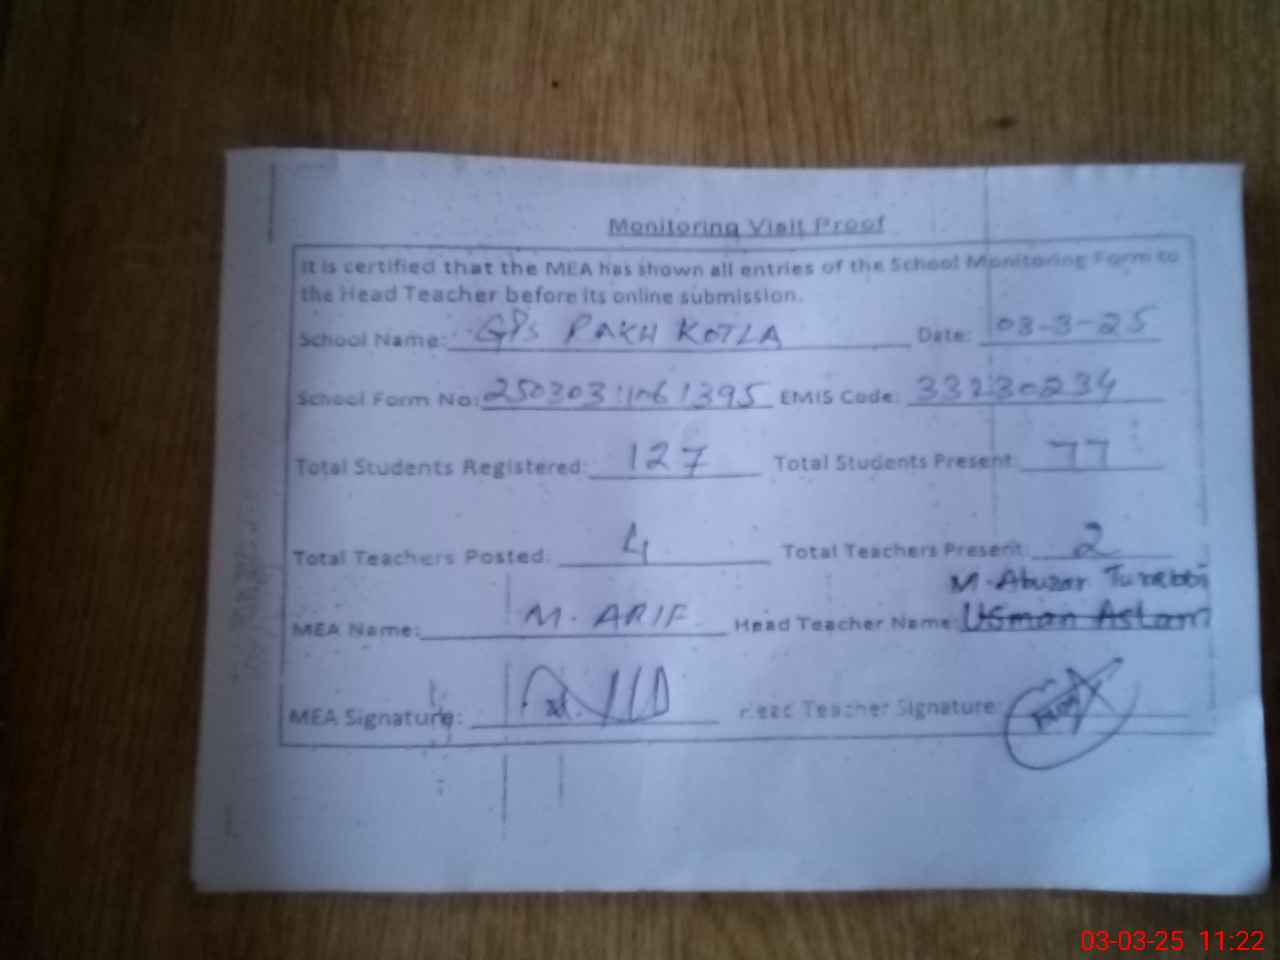 Monitoring Visit Proof
It is certified that the MEA has shown all entries of the School Monitoring Form to
the Head Teacher before its online submission.
School Name: GPS PAKH KOTLA Date: 03-3-25
School Form No: EMIS Code: 33230234
Total Students Registered: 127 Total Students Present: 77
Total Teachers Posted: 4 Total Teachers Present: 2
M. Abuzar
MEA Name: M. ARIF Head Teacher Name: Usman Aslam
MEA Signature: Head Teacher Signature:
03-03-25 11:22